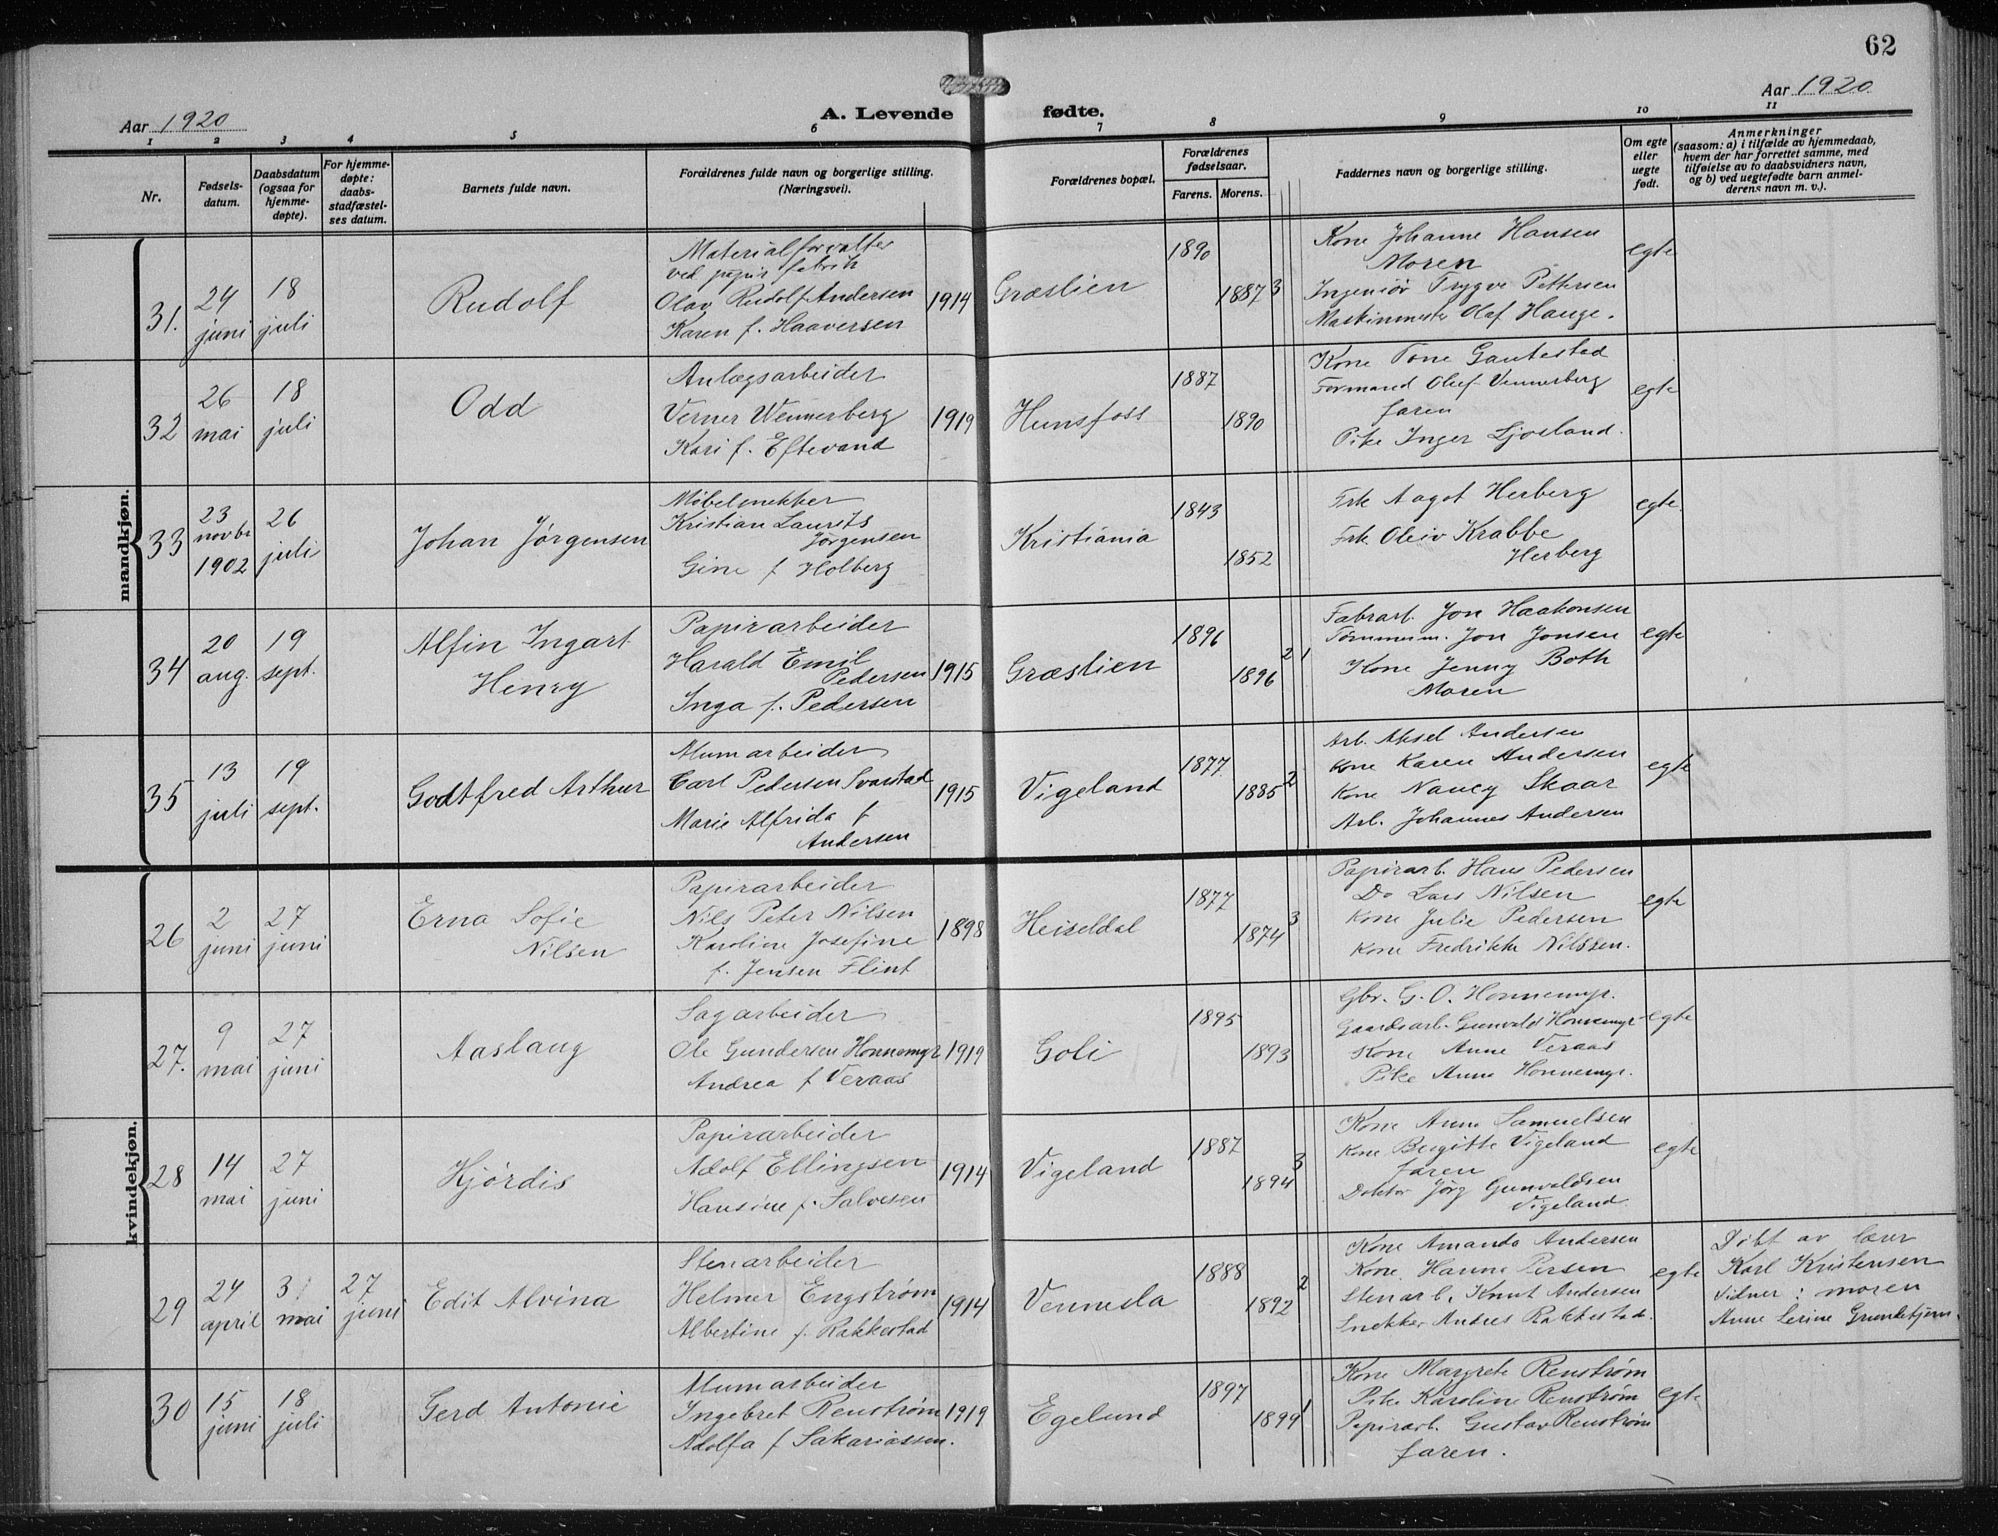 62
Aar 1920
A. Levende fødte.
Aar 1920
1 2 3 4 5 6 7 8 9 10 11
Nr.
Fødsels-
datum.
Daabsdatum
(ogsaa for
hjemme-
døpte).
For hjemme-
døpte:
daabs-
stadfæstel-
ses datum.
Barnets fulde navn.
Forældrenes fulde navn og borgerlige stilling.
(Næringsvei).
Forældrenes bopæl.
Forældrenes
fødselsaar.
Farens. Morens.
Faddernes navn og borgerlige stilling.
Om egte
eller
uegte
født.
Anmerkninger
(saasom: a) i tilfælde av hjemmedaab,
hvem der har forrettet samme, med
tilføielse av to daabsvidners navn,
og b) ved uegtefødte barn anmel-
derens navn m. v.).
mandkjøn.
31.
24
juni
18
juli
Rudolf
Materialforvalter
ved papir fabrik
Olav Rudolf Andersen
Karen f. Haaversen
1914
Græslien
1890
1887
3
Kone Johanne Hansen
Moren
Ingeniør Trygve Pettersen
Maskinmester Olaf Hauge.
egte
32
26
mai
18
juli
Odd
Anlægsarbeider
Verner Wennerberg
Kari f. Eftevand
1919
Hunsfoss
1887
1890
Kone Tone Gautestad
Formand Oluf Vennerberg
faren
Pike Inger Ljosland.
egte
33
23
novbr
1902
26
juli
Johan Jørgensen
Møbelsnekker
Kristian Laurits
Jørgensen
Gine f Holberg
Kristiania
1843
1852
Frk Aagot Herberg
Frk. Oleiv Krabbe
Herberg
egte
34
20
aug.
19
sept.
Alfin Ingart
Henry
Papirarbeider
Harald Emil
Pedersen
Inga f. Pedersen
1915
Græslien
1896
1896
2 1
Fabrarb. Jon Haakonsen
Tømmerm. Jon Jonsen
Kone Jenny Both
Moren
egte
35
13
juli
19
sept.
Godtfred Arthur
Alumarbeider
Carl Pedersen Svarstad
Marie Alfrida f
Andersen
1915
Vigeland
1877
1885
2
Arb. Aksel Andersen
Kone Karen Andersen
Kone Nancy Skaar
Arb. Johannes Andersen
egte
kvindekjøn.
26
2
juni
27
juni
Erna Sofie
Nilsen
Papirarbeider
Nils Peter Nilsen
Karoline Josefine
f. Jensen Flint
1898
Heiseldal
1877
1874
3
Papirarb. Hans Pedersen
Do Lars Nilsen
Kone Julie Pedersen
Kone Fredrikke Nilssen.
egte
27.
9
mai
27
juni
Aaslaug
Sagarbeider
Ole Gundersen Honnemyr
Andrea f Veraas
1919
Goli
1895
1893
Gbr. G. O. Honnemyr.
Gaardsarb. Gunvald Honnemyr
Kone Anne Veraas
Pike Anne Honnemyr.
egte
28
14
mai
27
juni
Hjørdis
Papirarbeider
Adolf Ellingsen
Hansine f. Salvesen
1914
Vigeland
1887
1894
3
Kone Anne Samuelsen
Kone Birgitte Vigeland
faren
Doktor Jørg Gunvaldsen
Vigeland.
egte
29
24
april
31
mai
27
juni
Edit Alvina
Stenarbeider
Helmer Engstrøm
Albertine f. Rakkestad
1914
Vennesla
1888
1892
2
Kone Amanda Andersen
Kone. Hanne Persen
Stenarb. Knut Andersen
Snekker Andres Rakkestad.
egte
Døbt av lærer
Karl Kristensen
Vidner: moren
Anne Serine
30
15
juni
18
juli
Gerd Antonie
Alumarbeider
Ingebret Renstrøm
Adolfa f Sakariassen.
1919
Egelund
1897
1899
1
Kone Margrete Renstrøm
Pike Karoline Renstrøm
Papirarb. Gustav Renstrøm
faren.
egte